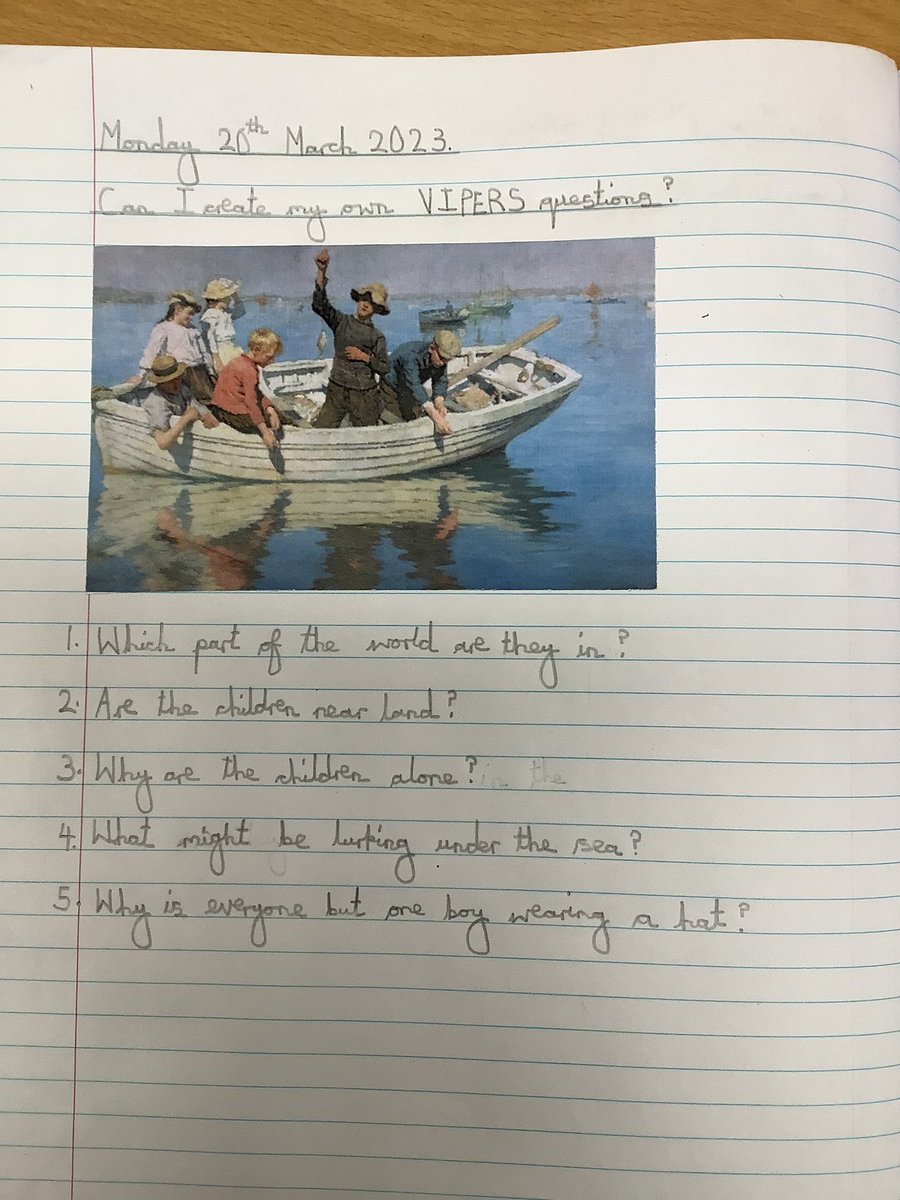 Monday 20th March 2023.
Can I create my own VIPERS questions?
1. Which part of the world are they in?
2. Are the children near land?
3. Why are the children alone? in the
4. What might be lurking under the sea?
5. Why is everyone but one boy wearing a hat?